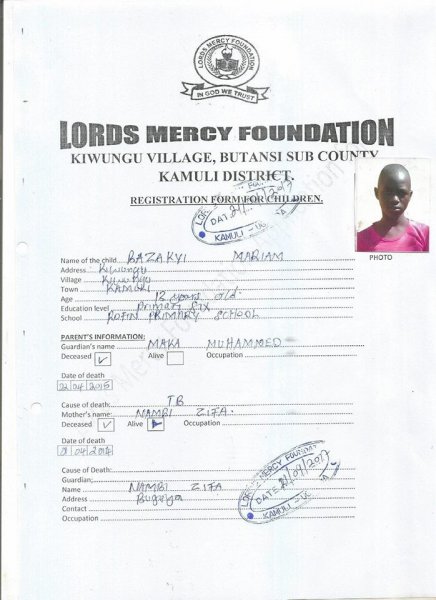 LORDS MERCY FOUNDATION
IN GOD WE TRUST
LORDS MERCY FOUNDATION
KIWUNGU VILLAGE, BUTANSI SUB COUNTY
KAMULI DISTRICT.
REGISTRATION FORM FOR CHILDREN.
DATE 21/09/2017
KAMULI - UG
PHOTO
Name of the child BAZAKYI MARIAM
Address : Kiwungu
Village Kiwungu
Town KAMULI
Age 12 years old.
Education level Primary Six
School ROFIN PRIMARY SCHOOL
PARENT'S INFORMATION:
Guardian's name MAKA MUHAMMED
Deceased ✓ Alive Occupation
Date of death
22/04/2015
Cause of death: TB
Mother's name: NAMBI ZIFA.
Deceased ✓ Alive Occupation
Date of death
01 04 2014
Cause of Death:
Guardian;
Name NAMBI ZIFA
Address Bugeya
Contact
Occupation
LORDS MERCY FOUNDAT
DATE 21/09/2017
KAMULI - UG